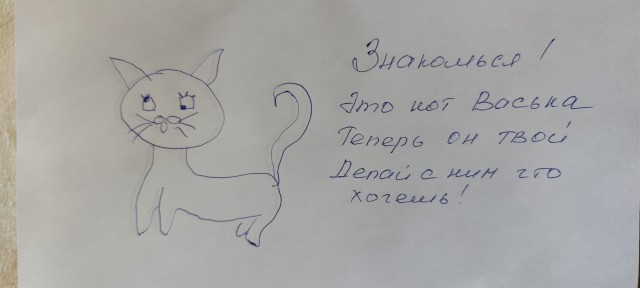 Знакомься!
Это кот Васька
Теперь он твой
Делай с ним что
хочешь!